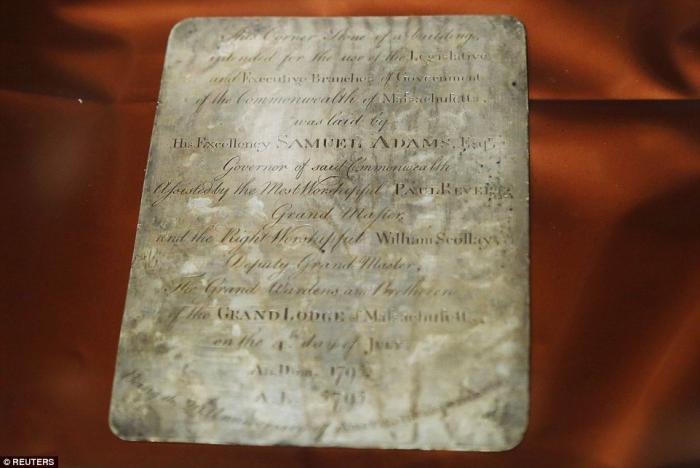 This Corner Stone of a building,
intended for the use of the Legislative
and Executive Branches of Government
of the Commonwealth of Maſsachuſetts,
was laid by
His Excellency SAMUEL ADAMS, Esqr.
Governor of said Commonwealth
Aſsisted by the Most Worshipful PAUL REVERE,
Grand Master,
and the Right Worshipful William Scollay,
Deputy Grand Master,
The Grand Wardens and Brethren
of the GRAND LODGE of Maſsachuſetts,
on the 4th day of JULY.
An. Dom. 1795.
A. L. 5795.
Being the
© REUTERS